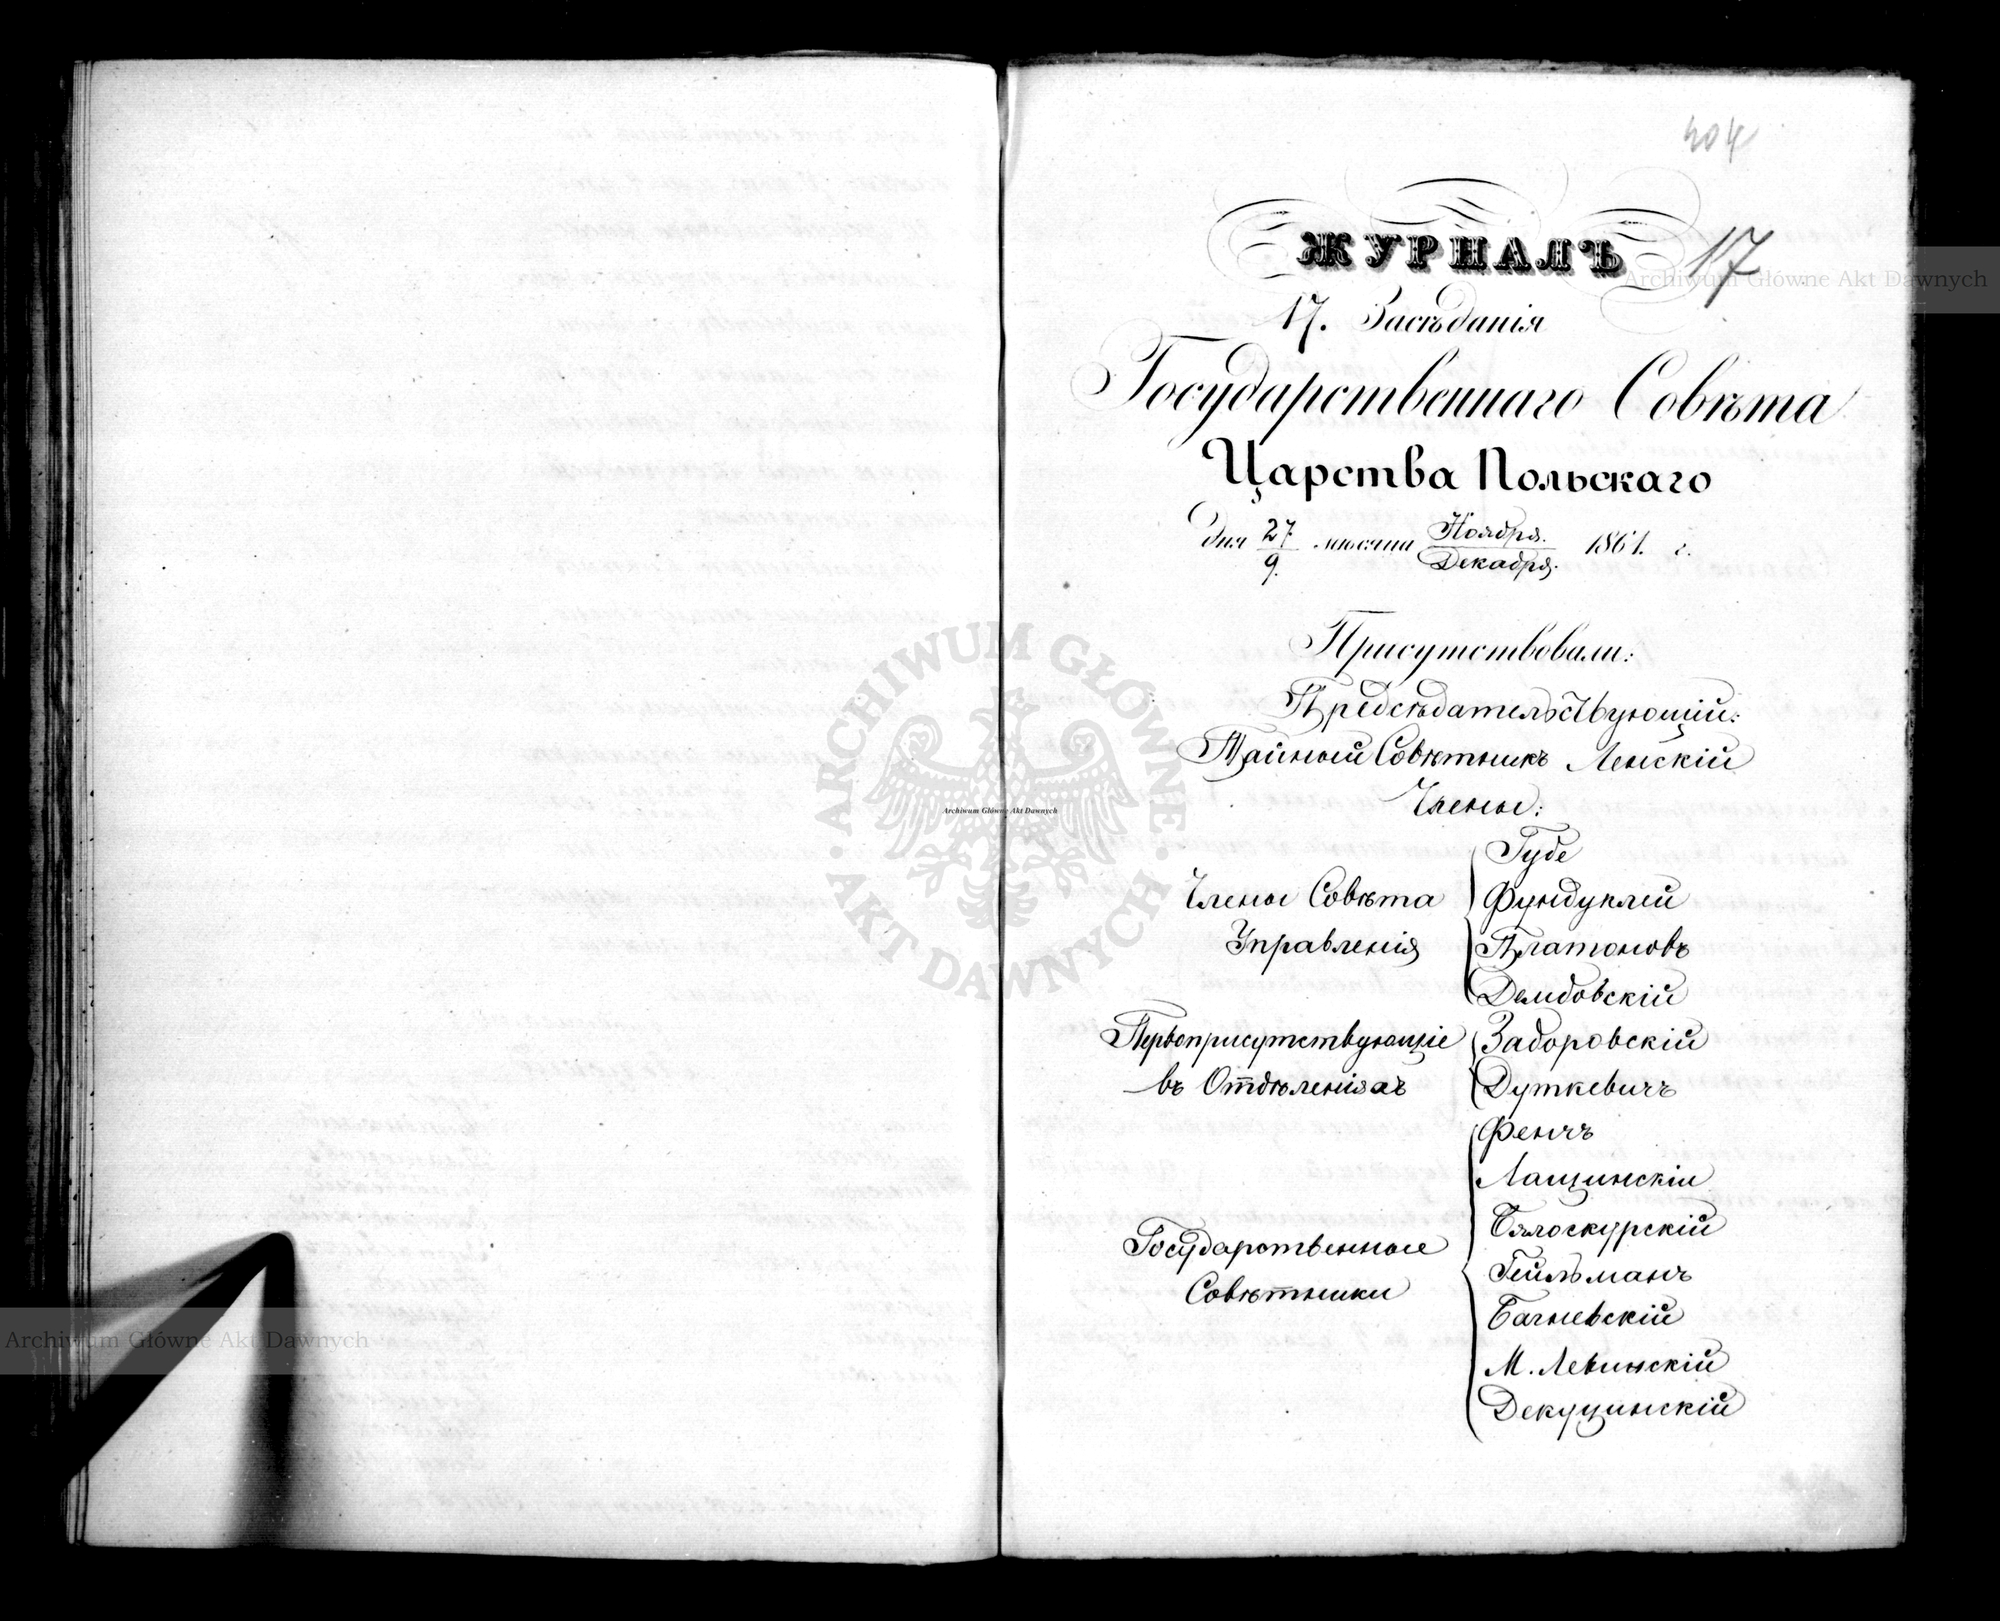 404
ЖУРНАЛЪ 17
17. Засѣданія
Государственнаго Совѣта
Царства Польскаго
дня 27/9. мѣсяца Ноября./Декабря. 1861. г.
Присутствовали:
Предсѣдательствующій:
Тайный Совѣтникъ Ленскій
Члены:
Члены Совѣта
Управленія
Губе
Фундуклей
Платоновъ
Дембовскій
Первоприсутствующіе
въ Отдѣленіяхъ
Заборовскій
Дуткевичъ
Государственные
Совѣтники
Фенчъ
Лащинскій
Бялоскурскій
Гейльманъ
Багневскій
М. Левинскій
Декуцинскій
Archiwum Główne Akt Dawnych
ARCHIWUM GŁÓWNE AKT DAWNYCH
Archiwum Główne Akt Dawnych
Archiwum Główne Akt Dawnych